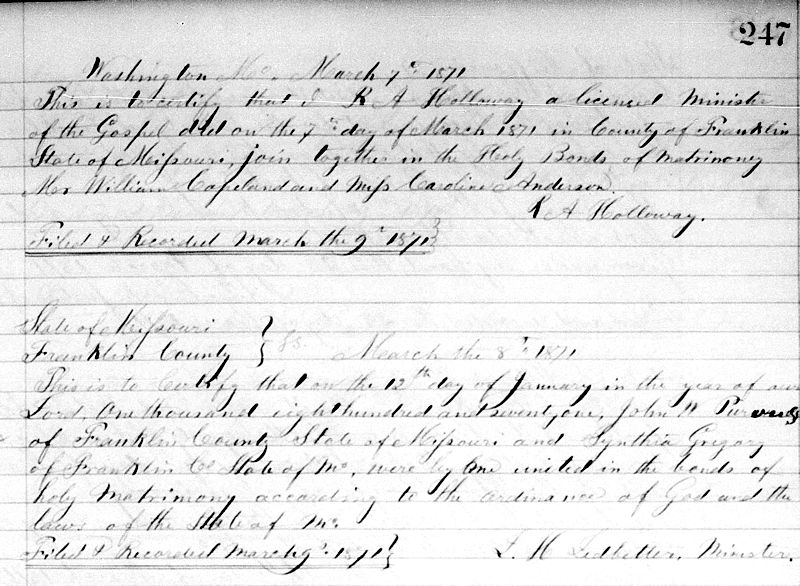 247
Washington Mo. March 7th 1871
This is to certify that I R A Holloway a licensed Minister
of the Gospel did on the 7th day of March 1871 in County of Franklin
State of Missouri, join together in the Holy Bonds of Matrimony
Mr William Copeland and Miss Caroline Anderson.
R A Holloway.
Filed & Recorded March the 9th 1871}
State of Missouri
Franklin County } ss. March the 8th 1871
This is to Certify that on the 12th day of January in the year of our
Lord, One thousand eight hundred and seventy one, John W
of Franklin County State of Missouri and Synthia Gregory
of Franklin Co State of Mo, were by me united in the bonds of
holy Matrimony according to the ordinance of God and the
laws of the State of Mo
Filed & Recorded March 9th 1871} L. H Ledbetter, Minister.